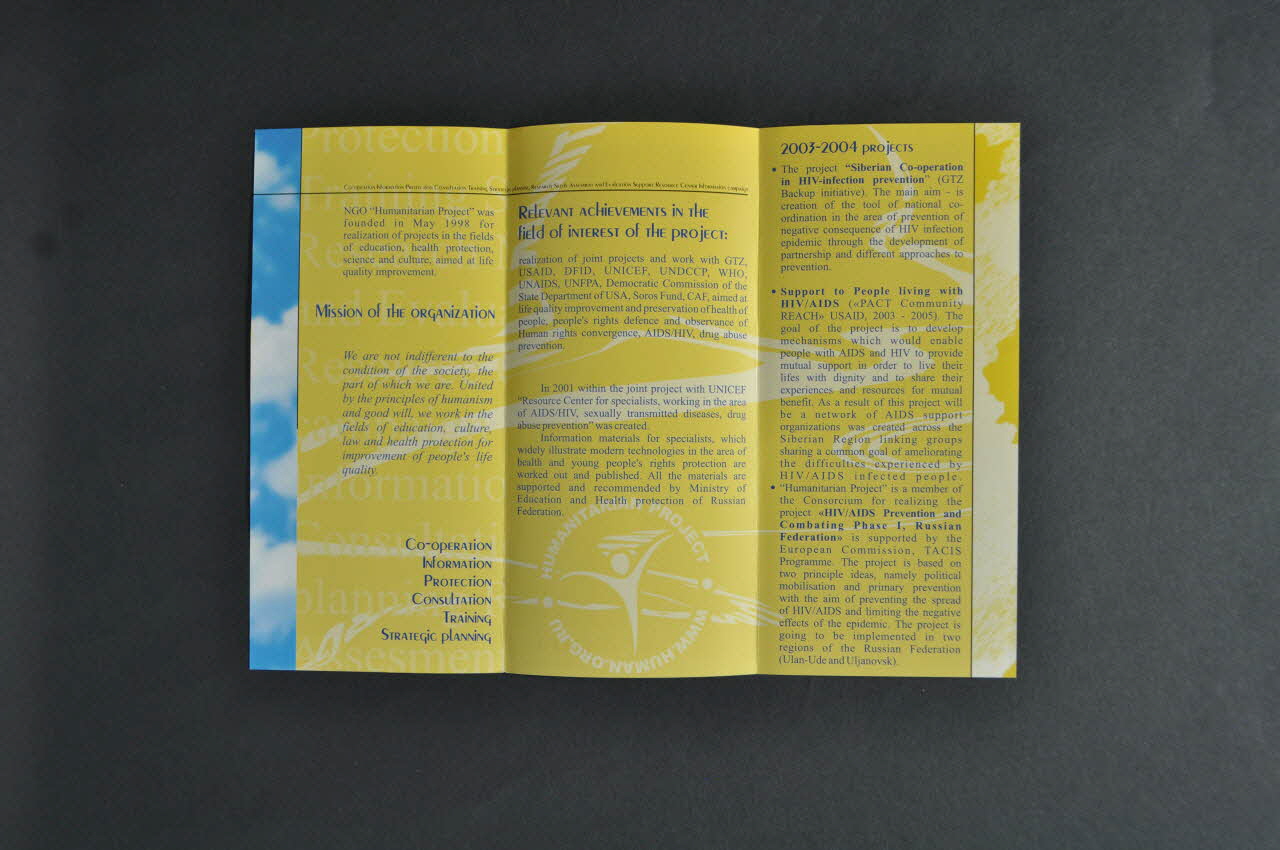 Co-operation Information Protection Consultation Training Strategic planning Research Needs Assessment and Evaluation Support Resource Center Information campaign
NGO “Humanitarian Project” was
founded in May 1998 for
realization of projects in the fields
of education, health protection,
science and culture, aimed at life
quality improvement.
Mission of the organization
We are not indifferent to the
condition of the society, the
part of which we are. United
by the principles of humanism
and good will, we work in the
fields of education, culture,
law and health protection for
improvement of people's life
quality.
Co-operation
Information
Protection
Consultation
Training
Strategic planning
Relevant achievements in the
field of interest of the project:
realization of joint projects and work with GTZ,
USAID, DFID, UNICEF, UNDCCP, WHO,
UNAIDS, UNFPA, Democratic Commission of the
State Department of USA, Soros Fund, CAF, aimed at
life quality improvement and preservation of health of
people, people's rights defence and observance of
Human rights convergence, AIDS/HIV, drug abuse
prevention.
In 2001 within the joint project with UNICEF
“Resource Center for specialists, working in the area
of AIDS/HIV, sexually transmitted diseases, drug
abuse prevention” was created.
Information materials for specialists, which
widely illustrate modern technologies in the area of
health and young people's rights protection are
worked out and published. All the materials are
supported and recommended by Ministry of
Education and Health protection of Russian
Federation.
HUMANITARIAN PROJECT
WWW.HUMAN.ORG.RU
2003-2004 projects
• The project “Siberian Co-operation
in HIV-infection prevention” (GTZ
Backup initiative). The main aim - is
creation of the tool of national co-
ordination in the area of prevention of
negative consequence of HIV infection
epidemic through the development of
partnership and different approaches to
prevention.
• Support to People living with
HIV/AIDS («PACT Community
REACH» USAID, 2003 - 2005). The
goal of the project is to develop
mechanisms which would enable
people with AIDS and HIV to provide
mutual support in order to live their
lifes with dignity and to share their
experiences and resources for mutual
benefit. As a result of this project will
be a network of AIDS support
organizations was created across the
Siberian Region linking groups
sharing a common goal of ameliorating
the difficulties experienced by
HIV/AIDS infected people.
• “Humanitarian Project” is a member of
the Consorcium for realizing the
project «HIV/AIDS Prevention and
Combating Phase I, Russian
Federation» is supported by the
European Commission, TACIS
Programme. The project is based on
two principle ideas, namely political
mobilisation and primary prevention
with the aim of preventing the spread
of HIV/AIDS and limiting the negative
effects of the epidemic. The project is
going to be implemented in two
regions of the Russian Federation
(Ulan-Ude and Uljanovsk).